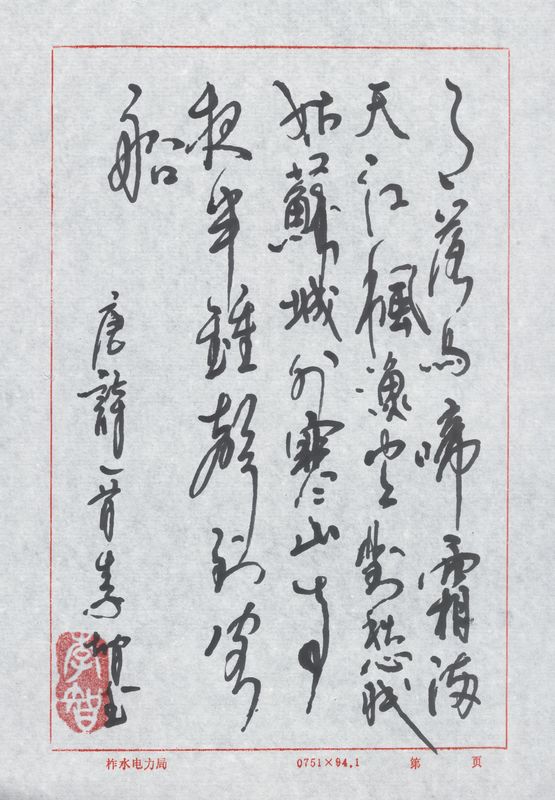 月落烏啼霜滿
天江楓漁火對愁眠
姑蘇城外寒山寺
夜半鐘聲到客
船
唐詩一首李智
李智
柞水电力局 0751×94.1 第 页